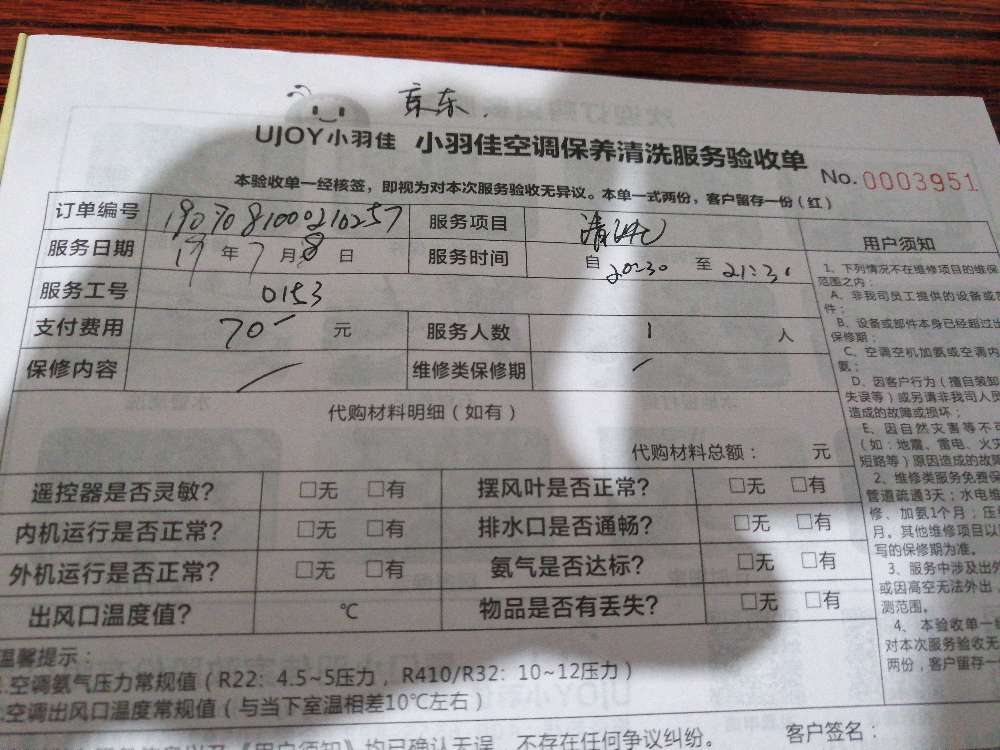 京东.
UJOY小羽佳 小羽佳空调保养清洗服务验收单
No. 0003951
本验收单一经核签，即视为对本次服务验收无异议。本单一式两份，客户留存一份（红）
订单编号 1907081000210257 服务项目 清洗
服务日期 17年7月8日 服务时间 自20:30至21:30
服务工号 0153
支付费用 70 元 服务人数 1 人
保修内容 / 维修类保修期 /
代购材料明细（如有）
代购材料总额： 元
遥控器是否灵敏？ □无 □有 摆风叶是否正常？ □无 □有
内机运行是否正常？ □无 □有 排水口是否通畅？ □无 □有
外机运行是否正常？ □无 □有 氨气是否达标？ □无 □有
出风口温度值？ ℃ 物品是否有丢失？ □无 □有
温馨提示：
.空调氨气压力常规值（R22：4.5~5压力，R410/R32：10~12压力）
.空调出风口温度常规值（与当下室温相差10℃左右）
《用户须知》均已确认无误，不存在任何争议纠纷。
客户签名：
用户须知
1、下列情况不在维修项目的维保
范围之内：
A、非我司员工提供的设备或
件；
B、设备或部件本身已经超过
保修期；
C、空调空机加氨或空调内
氨；
D、因客户行为（擅自装卸
失误等）或另请非我司人员
造成的故障或损坏；
E、因自然灾害等不可
（如：地震、雷电、火灾
短路等）原因造成的故障
2、维修类服务免费保
管道疏通3天；水电维
修、加氨1个月；压
月。其他维修项目以
写的保修期为准。
3、服务中涉及出外
或因高空无法外出，
测范围。
4、本验收单一
对本次服务验收无
两份，客户留存一